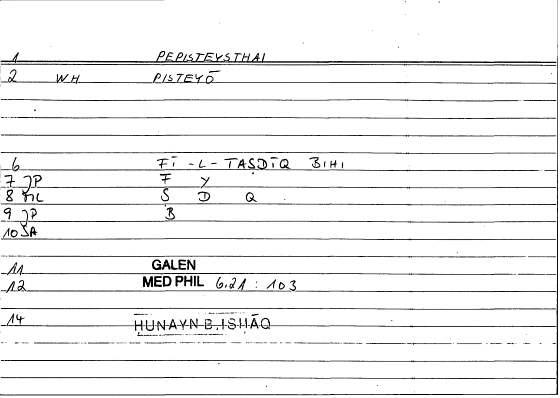 1 PEPISTEYSTHAI
2 WH PISTEYŌ
6 FĪ -L- TASDĪQ BIHI
7 JP F Y
8 ML S D Q
9 JP B
10 SA
11 GALEN
12 MED PHIL 6.21 : 103
14 HUNAYN B. ISHĀQ